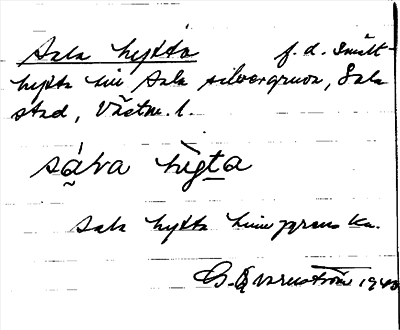 Sala hytta f.d. Smält-
hytta vid Sala silvergruva, Sala
stad, Västm. l.
sá̱lva hìgta
Sala hytta
G. Qvarnström 1940